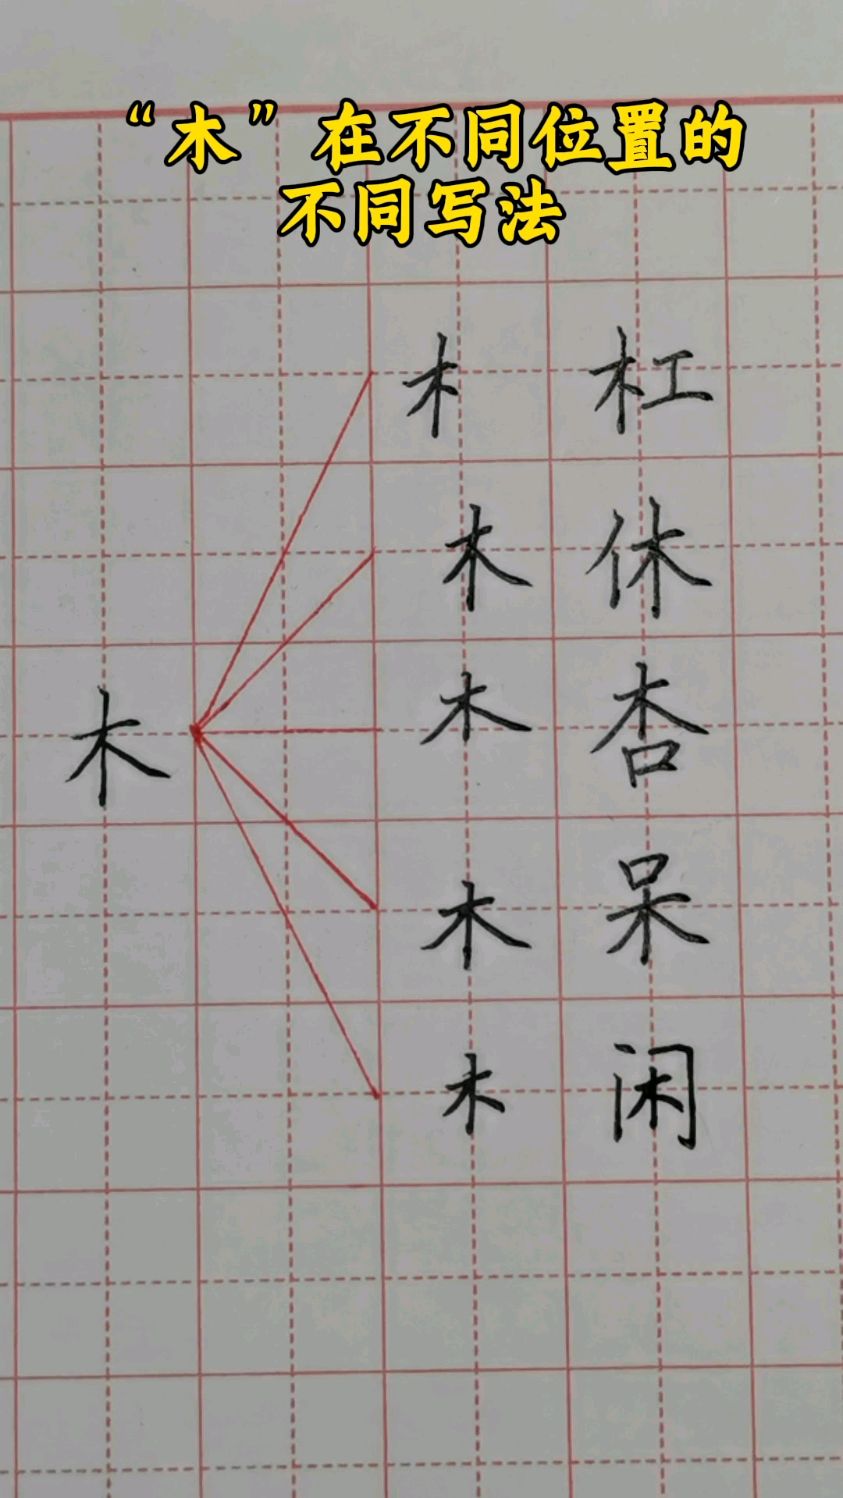 “木”在不同位置的
不同写法
木 杠
木 休
木
木 杏
木 呆
木 闲